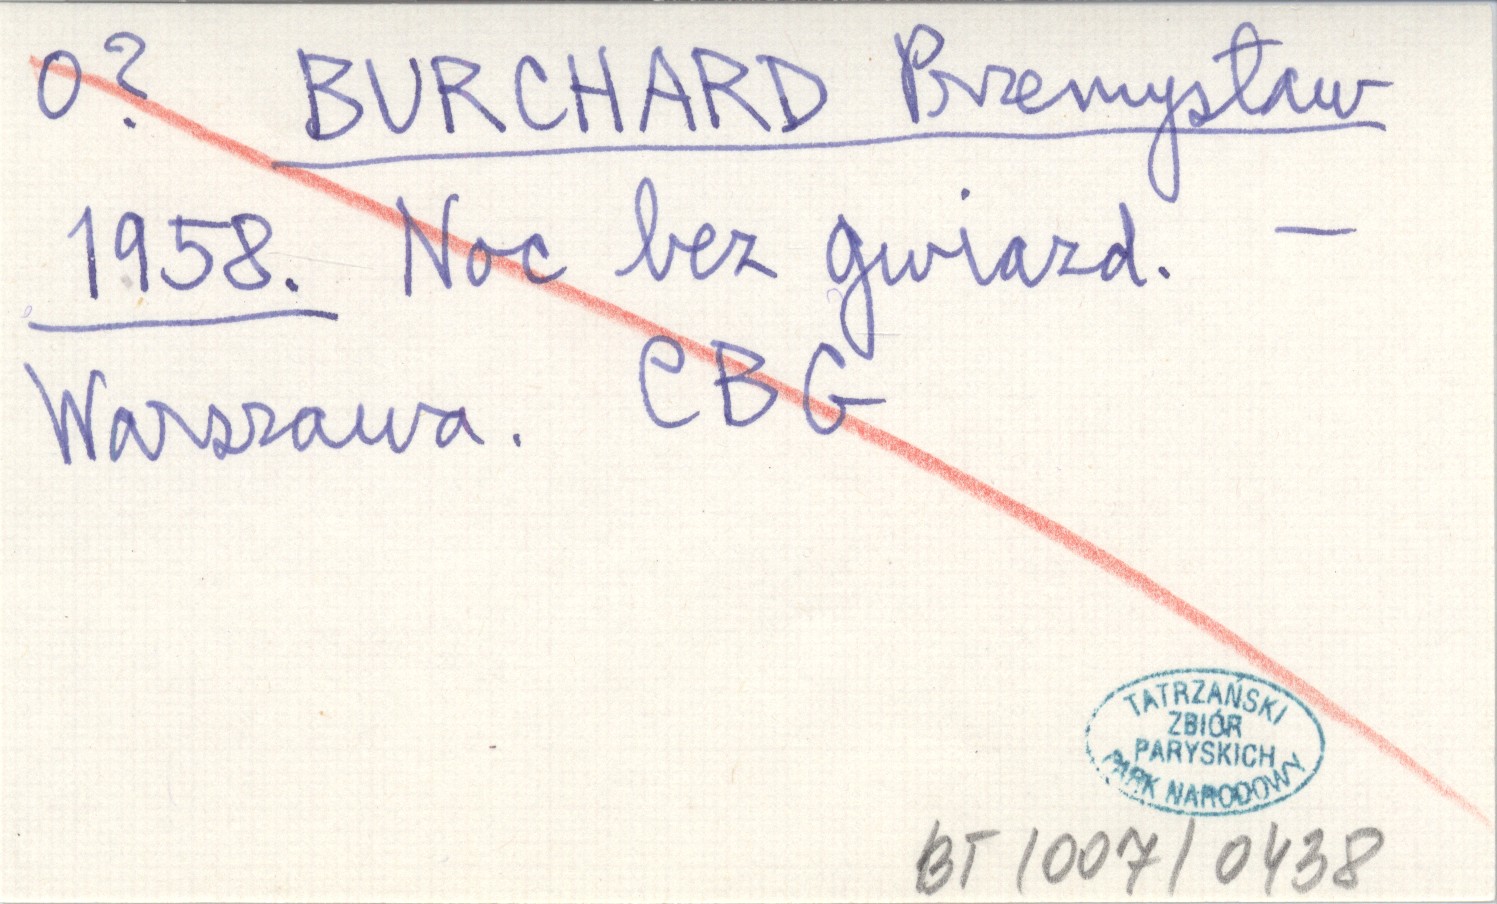 0? BURCHARD Przemysław
1958. Noc bez gwiazd. —
Warszawa. CBG
TATRZAŃSKI
ZBIÓR
PARYSKICH
PARK NARODOWY
BT/007/0438